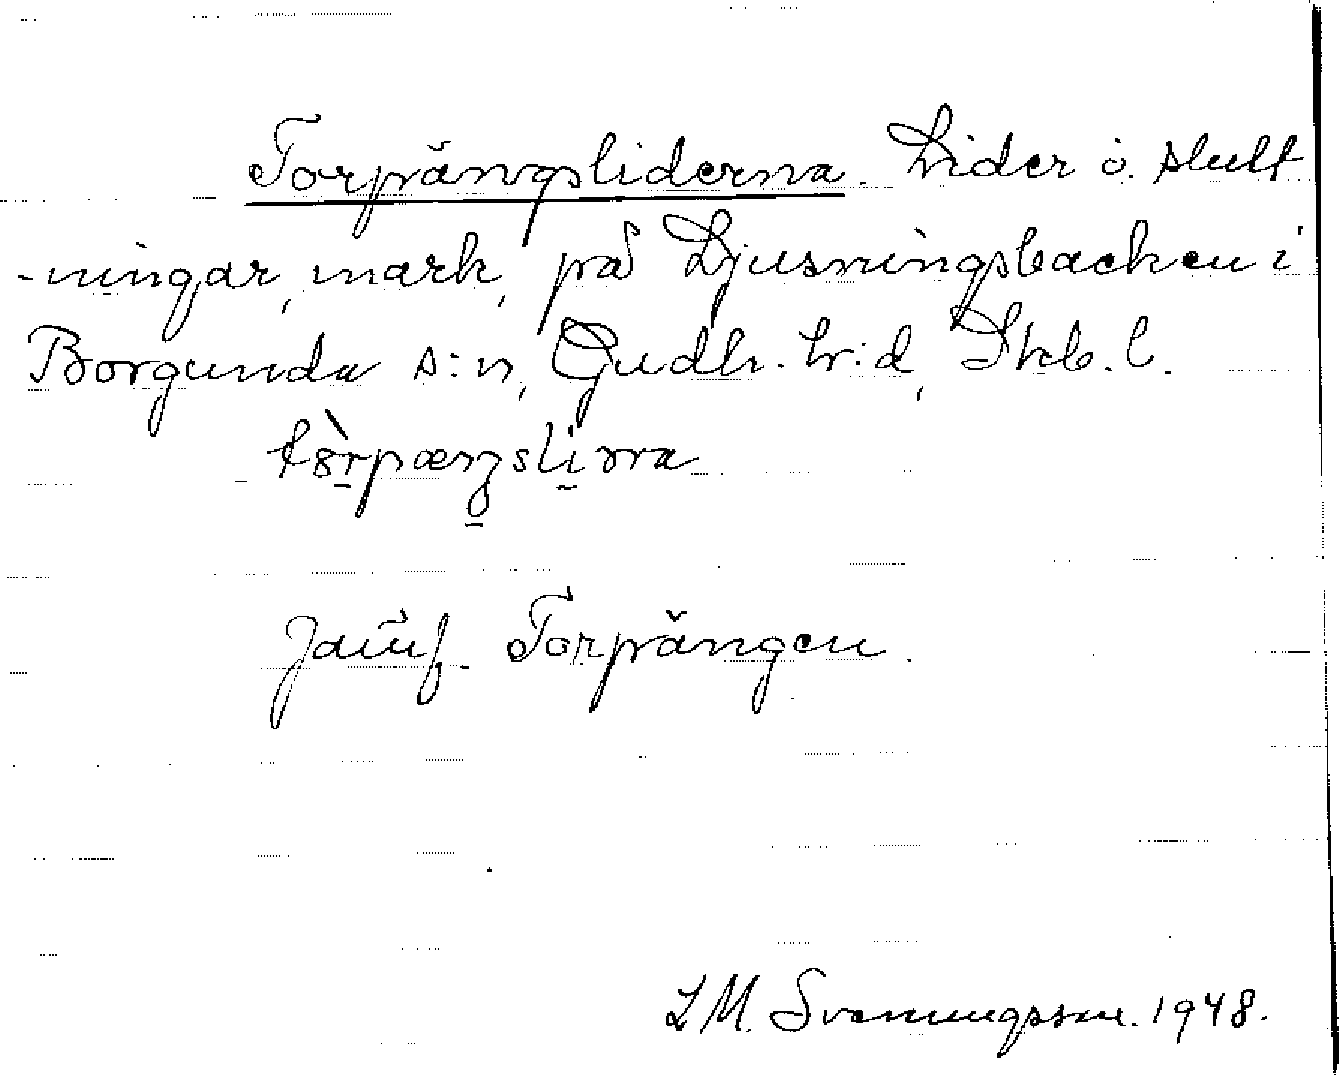 Torpängsliderna. Lider o. slutt
-ningar, mark, på Ljusningsbacken i
Borgunda s:n, Gudh. h:d, Skb. l.
Jämf. Torpängen.
L M. Svenungsson. 1948.